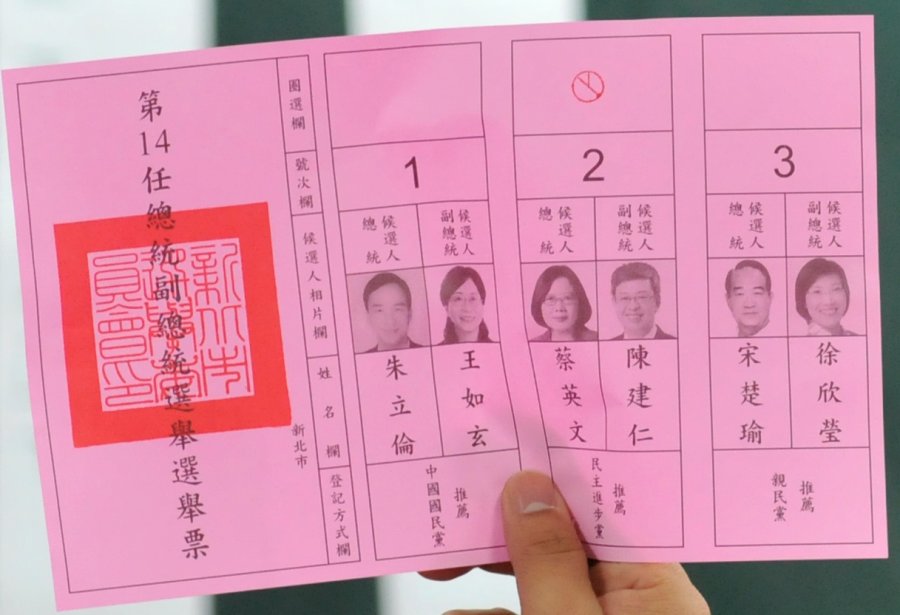 第14任總統副總統選舉選舉票
新北市
選舉委
員會印
新北市
圈選欄
號次欄
候選人相片欄
姓名欄
登記方式欄
1
總統
候選人
副總統
候選人
朱立倫
王如玄
中國國民黨
推薦
2
總統
候選人
副總統
候選人
蔡英文
陳建仁
民主進步黨
推薦
3
總統
候選人
副總統
候選人
宋楚瑜
徐欣瑩
親民黨
推薦